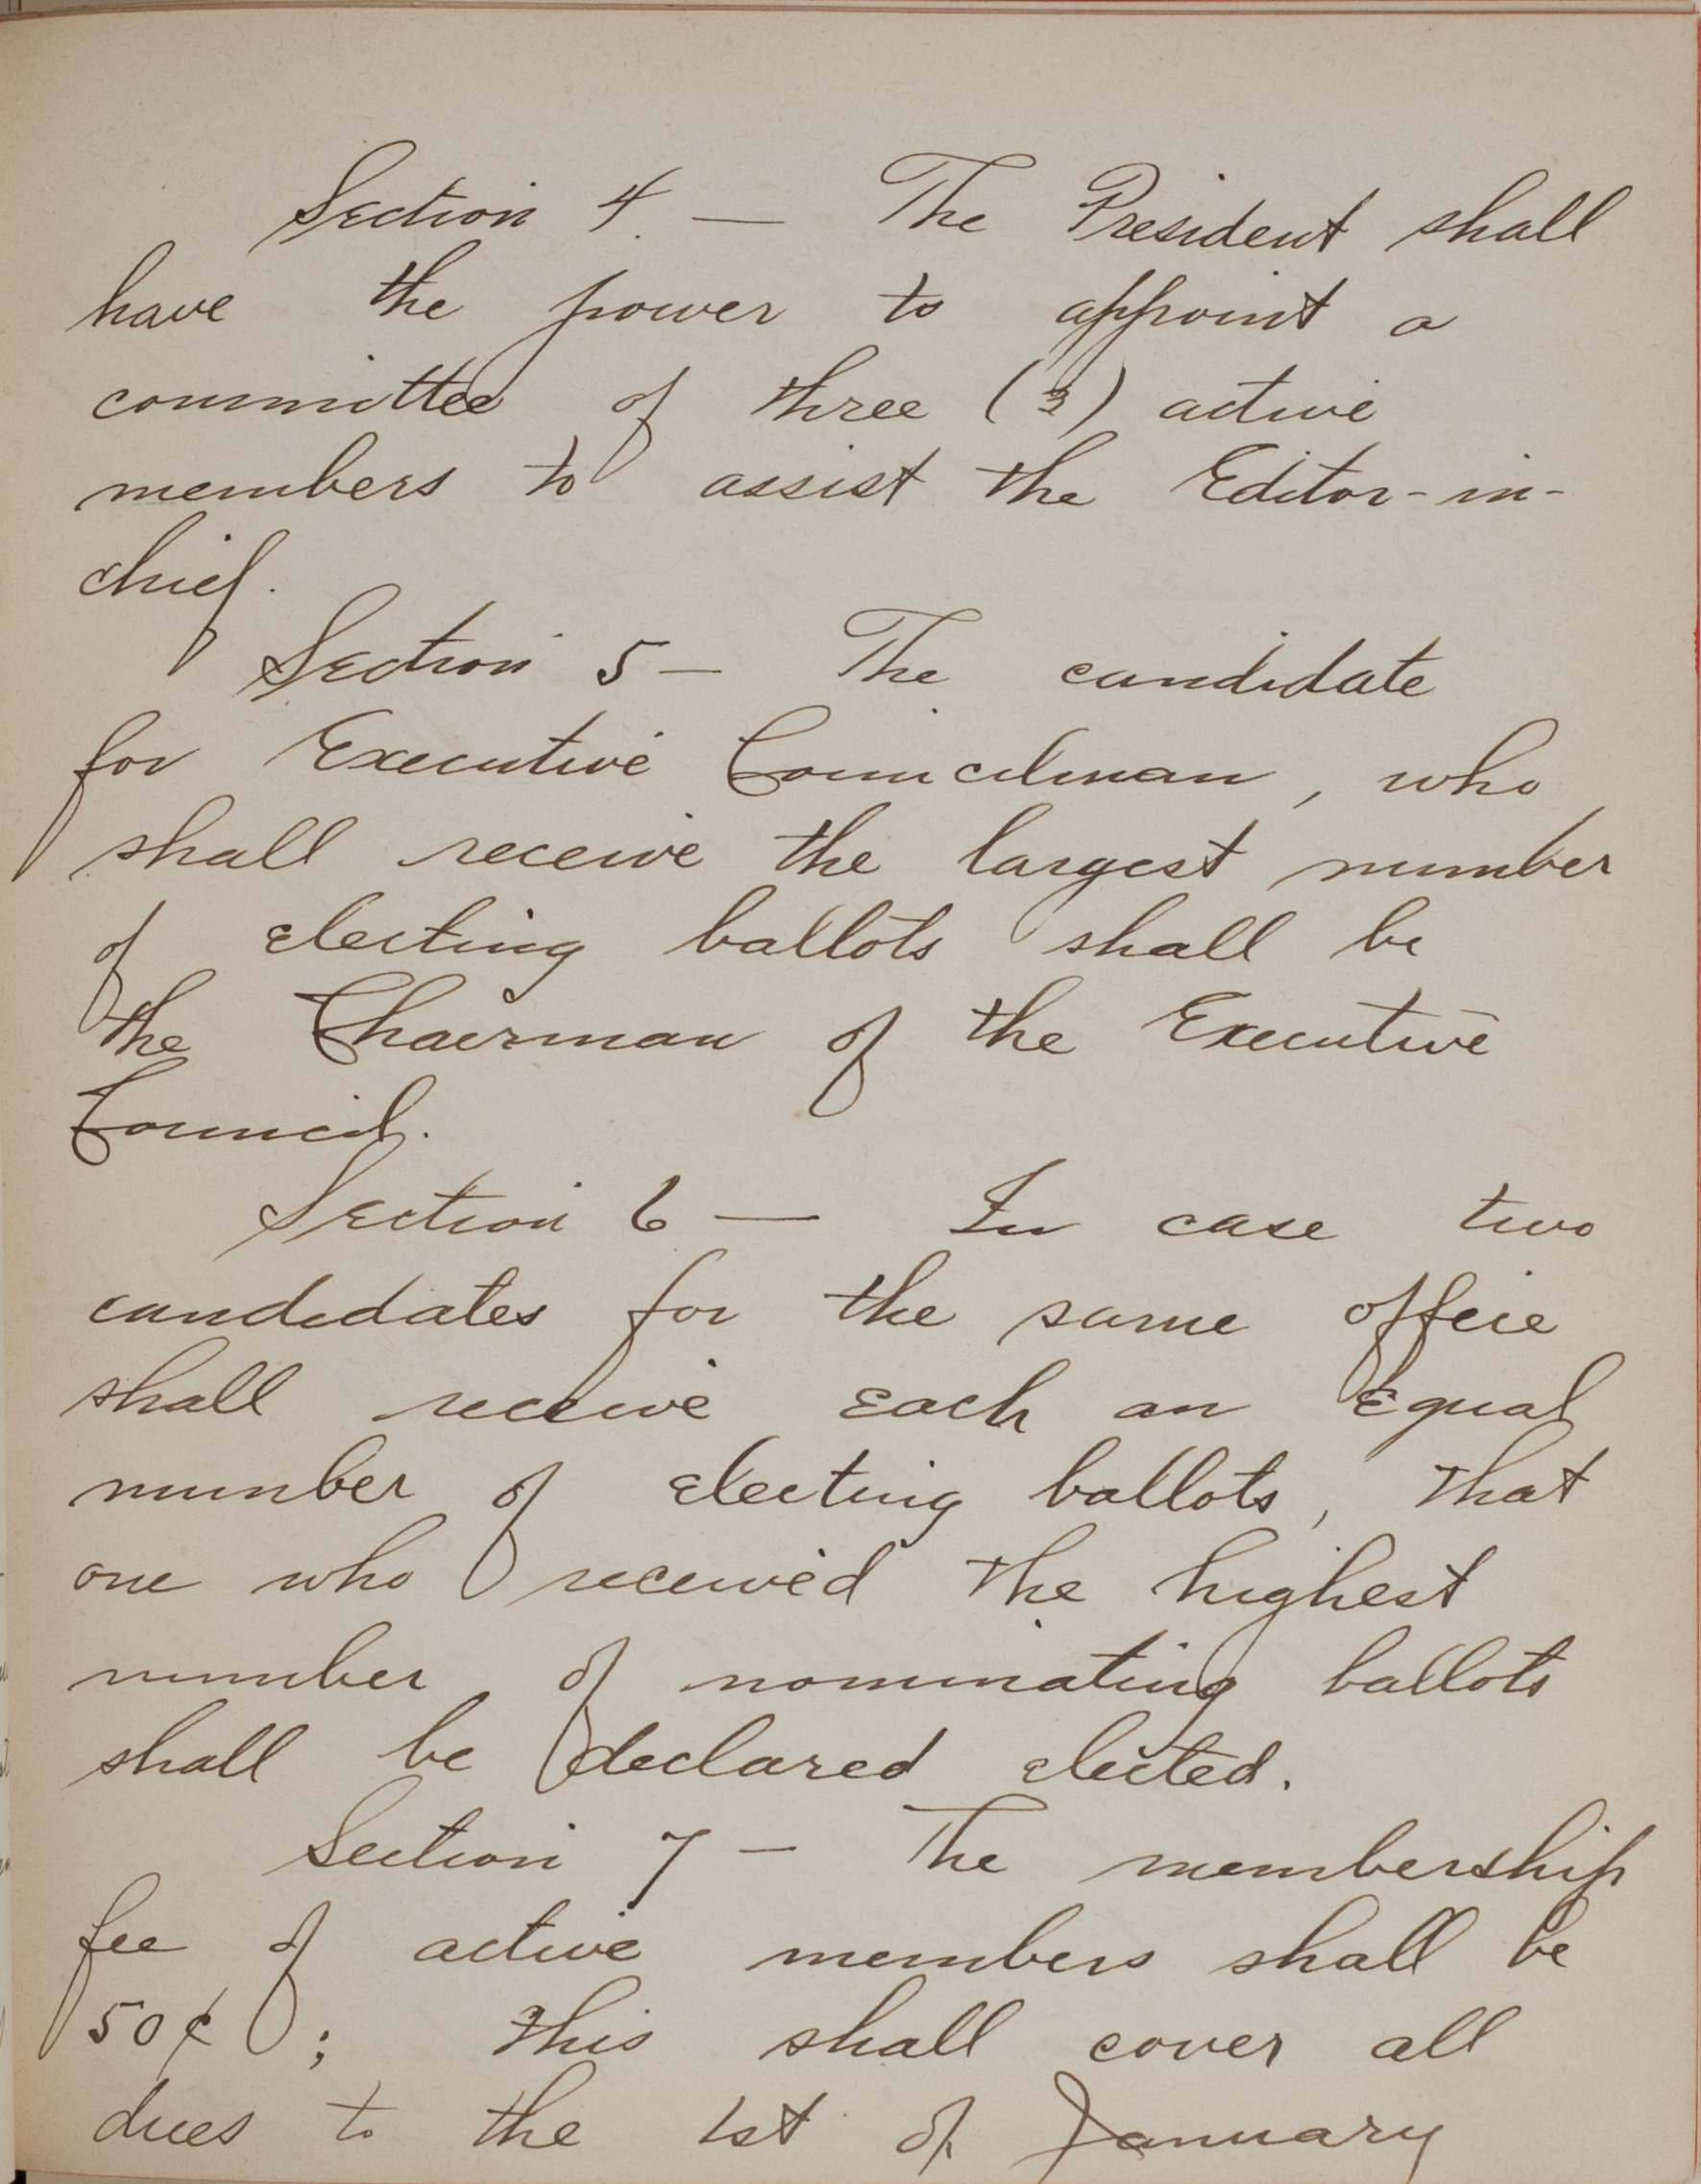 Section 4. — The President shall
have the power to appoint a
committee of three (3) active
members to assist the Editor-in-
chief.
Section 5 — The candidate
for Executive Councilman, who
shall receive the largest number
of electing ballots shall be
the Chairman of the Executive
Council.
Section 6 — In case two
candidates for the same office
shall receive each an equal
number of electing ballots, that
one who received the highest
number of nominating ballots
shall be declared elected.
Section 7 — The membership
fee of active members shall be
50¢ ; this shall cover all
dues to the 1st of January